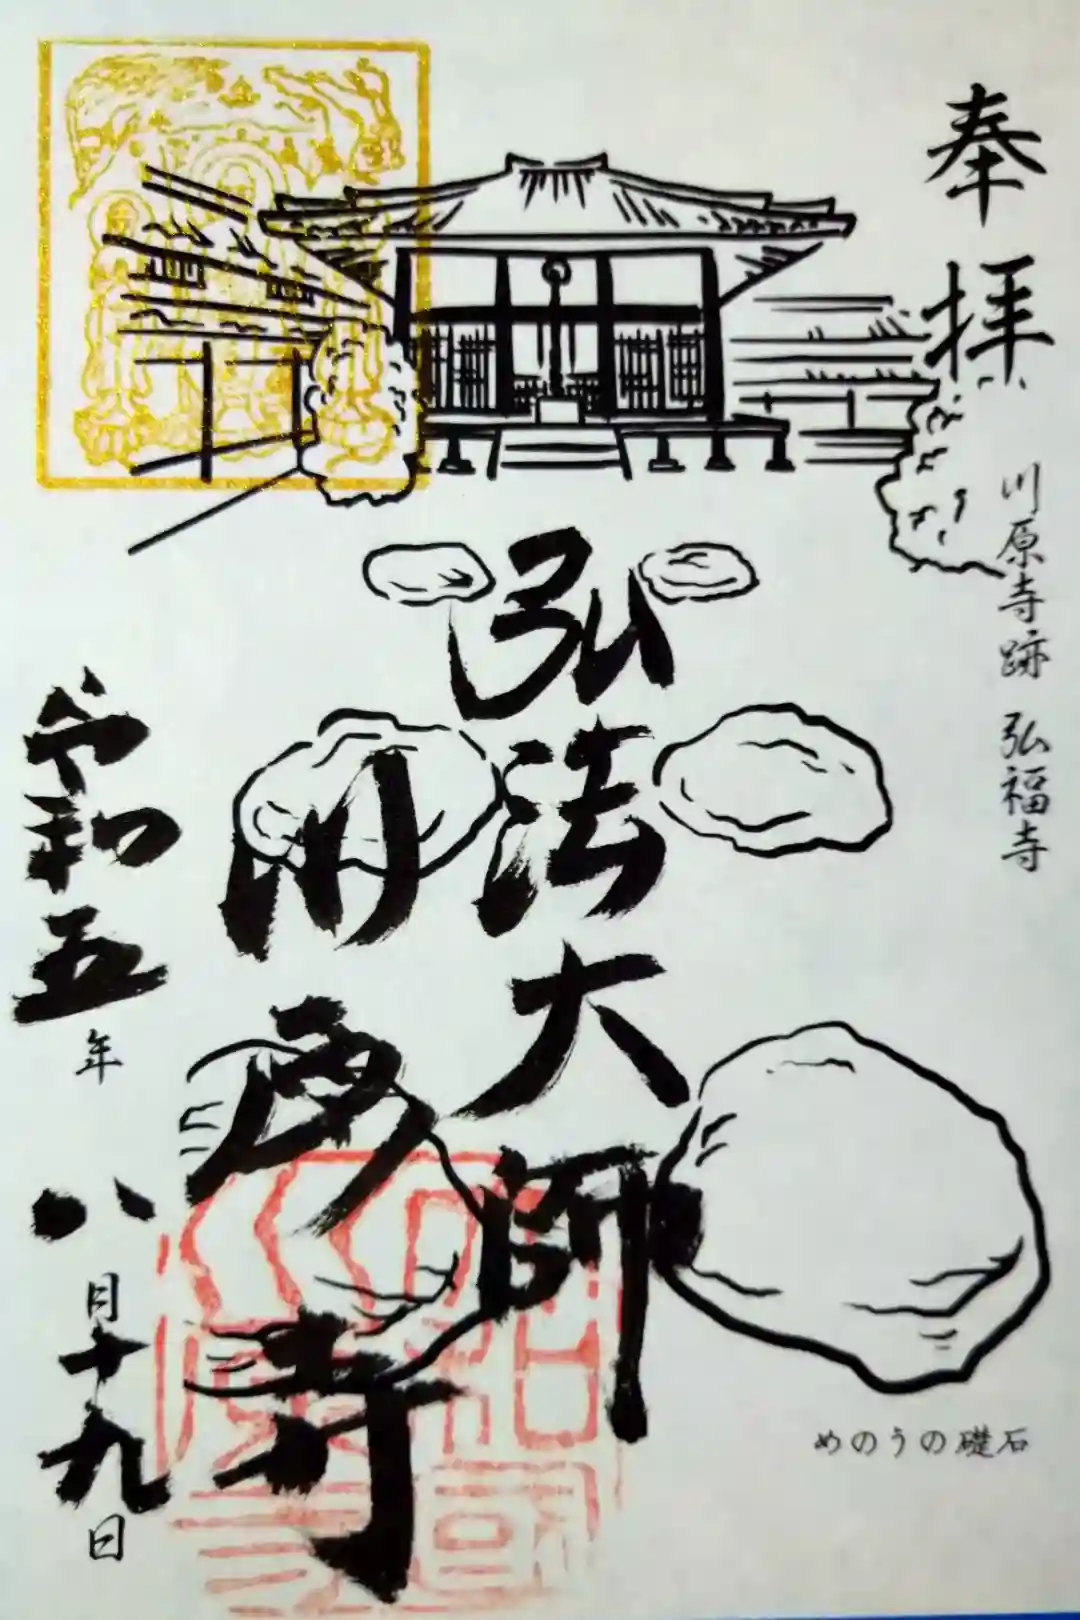 奉拝
川原寺跡 弘福寺
弘法大師
川原寺
令和五年八月十九日
めのうの礎石